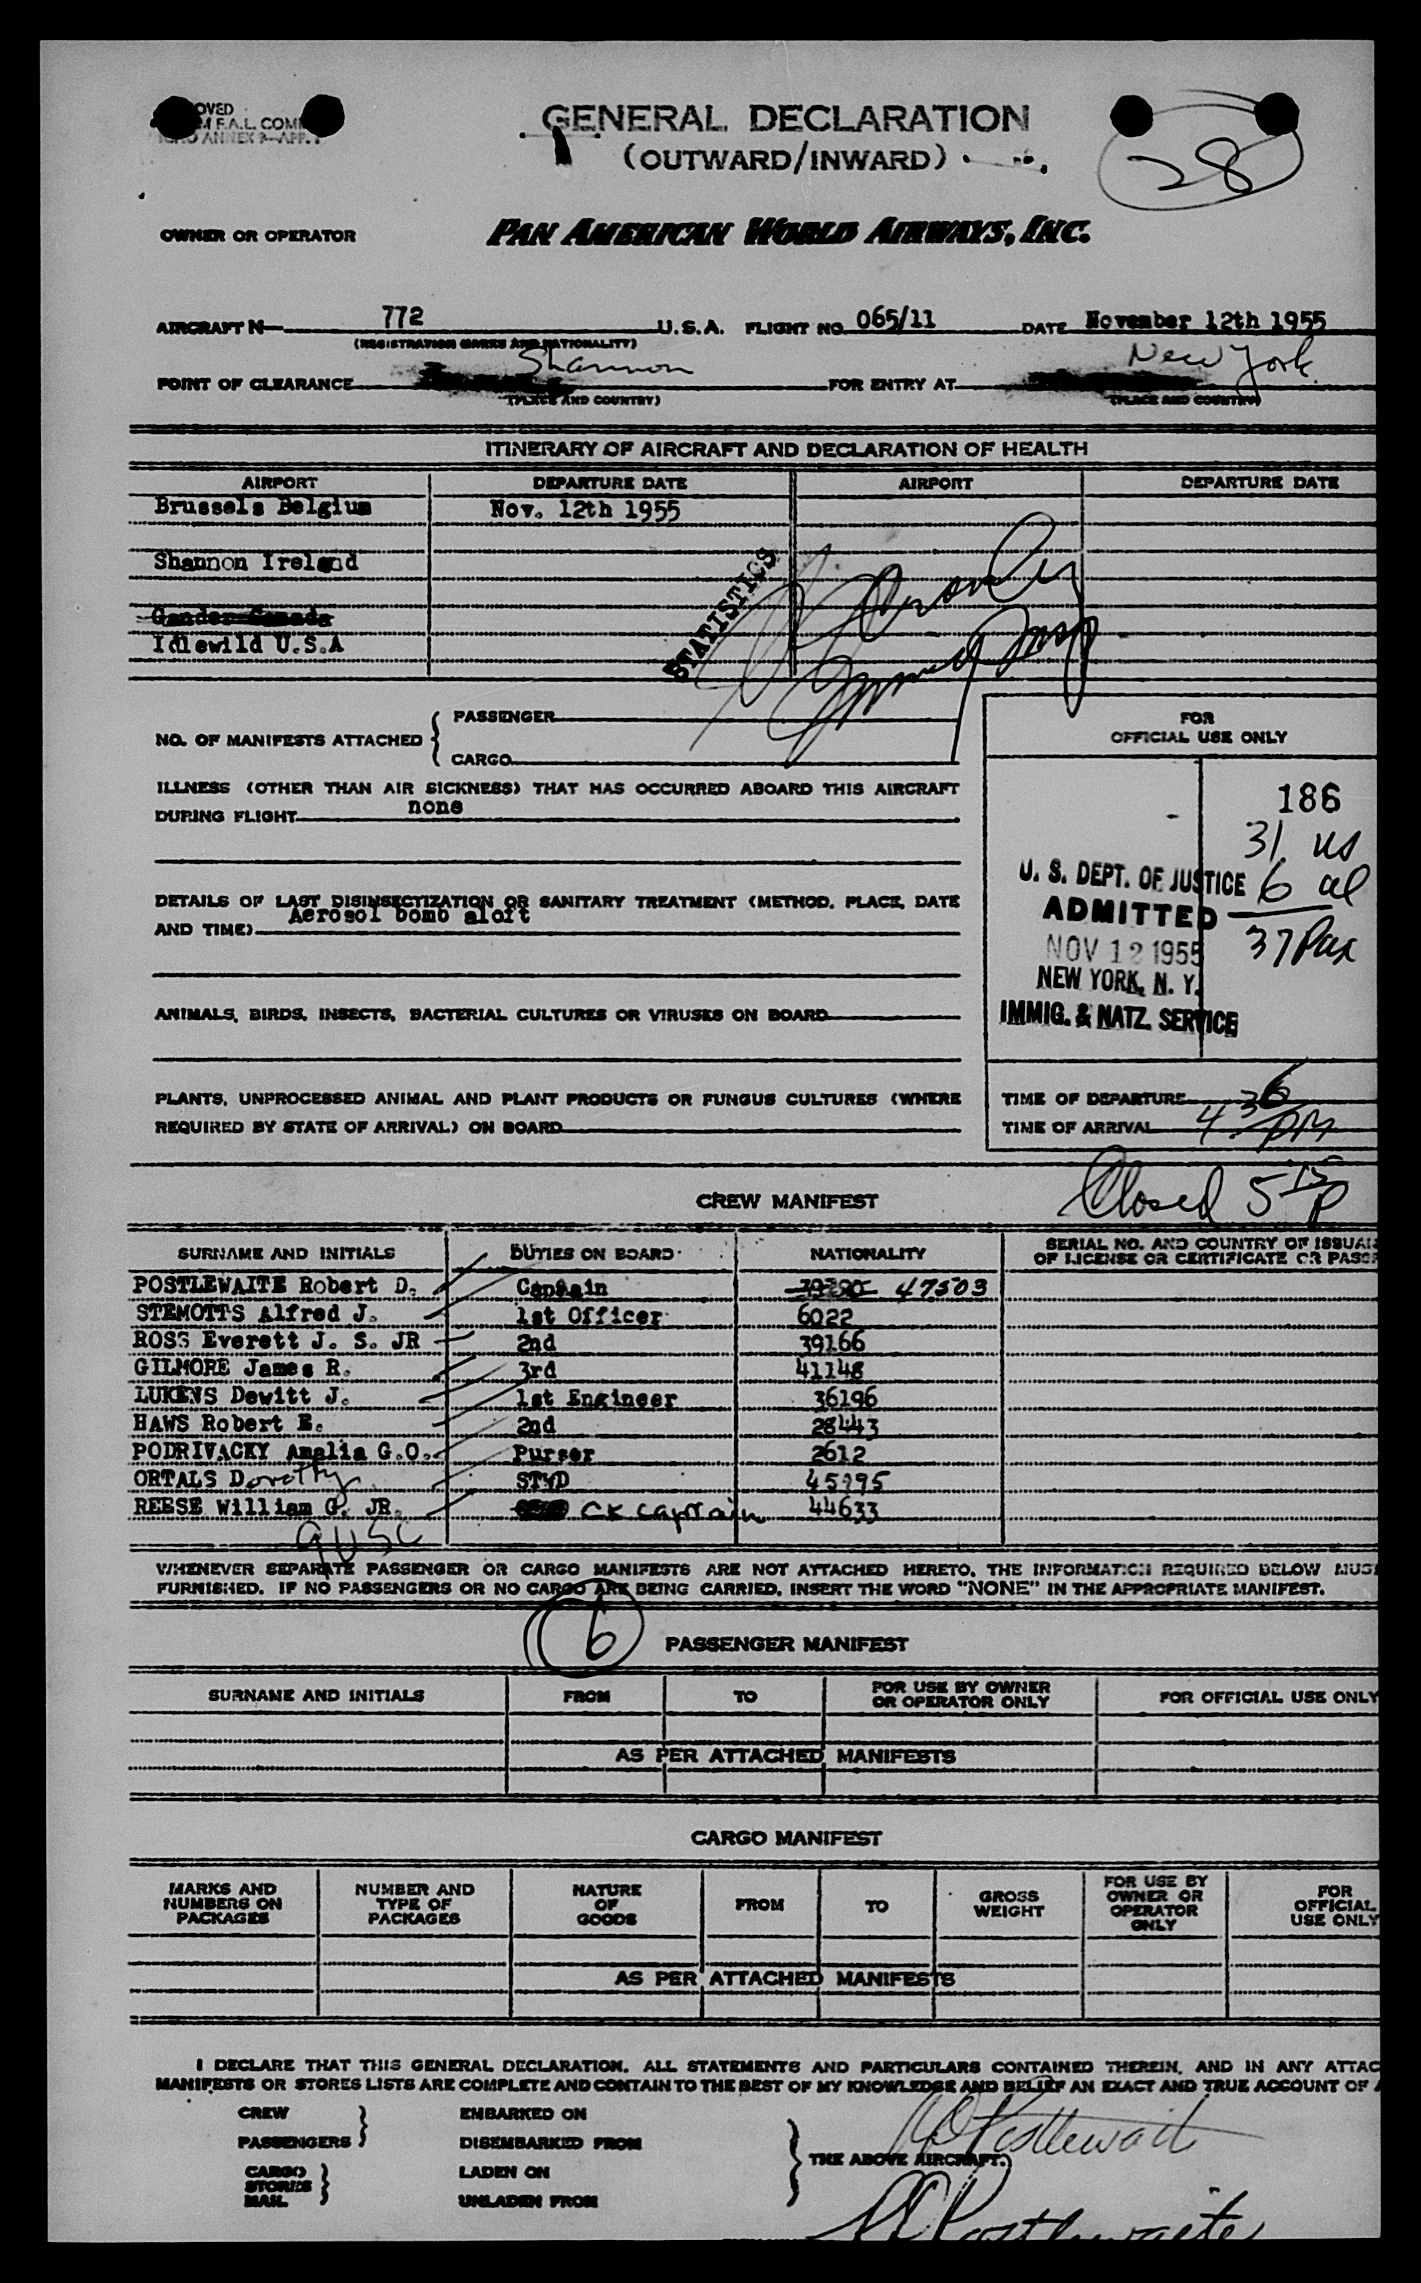 OVED
F.A.L. COM
ANNEX 9-APP.
GENERAL DECLARATION
(OUTWARD/INWARD)
28
OWNER OR OPERATOR PAN AMERICAN WORLD AIRWAYS, INC.
AIRCRAFT N 772 U.S.A. FLIGHT NO. 065/11 DATE November 12th 1955
(REGISTRATION MARKS AND NATIONALITY)
POINT OF CLEARANCE Shannon FOR ENTRY AT New York
(PLACE AND COUNTRY) (PLACE AND COUNTRY)
ITINERARY OF AIRCRAFT AND DECLARATION OF HEALTH
AIRPORT DEPARTURE DATE AIRPORT DEPARTURE DATE
Brussels Belgium Nov. 12th 1955
Shannon Ireland
Gander Canada
Idlewild U.S.A
STATISTICS
Immed Insp
NO. OF MANIFESTS ATTACHED { PASSENGER
CARGO
FOR
OFFICIAL USE ONLY
ILLNESS (OTHER THAN AIR SICKNESS) THAT HAS OCCURRED ABOARD THIS AIRCRAFT
DURING FLIGHT none
DETAILS OF LAST DISINSECTIZATION OR SANITARY TREATMENT (METHOD, PLACE, DATE
AND TIME) Aerosol bomb aloft
186
31 us
6 al
37 Pax
U. S. DEPT. OF JUSTICE
ADMITTED
NOV 12 1955
NEW YORK, N. Y.
IMMIG. & NATZ. SERVICE
ANIMALS, BIRDS, INSECTS, BACTERIAL CULTURES OR VIRUSES ON BOARD
PLANTS, UNPROCESSED ANIMAL AND PLANT PRODUCTS OR FUNGUS CULTURES (WHERE
REQUIRED BY STATE OF ARRIVAL) ON BOARD
TIME OF DEPARTURE
TIME OF ARRIVAL 4 36 PM
Closed 5 15 P
CREW MANIFEST
SURNAME AND INITIALS DUTIES ON BOARD NATIONALITY SERIAL NO. AND COUNTRY OF ISSUAN
OF LICENSE OR CERTIFICATE OR PASS
POSTLEWAITE Robert D. Captain 47503
STEMOTTS Alfred J. 1st Officer 6022
ROSS Everett J. S. JR 2nd 39166
GILMORE James R. 3rd 41148
LUKENS Dewitt J. 1st Engineer 36196
HAWS Robert E. 2nd 28443
PODRIVACKY Amalia G.O. Purser 2612
ORTALS Dorothy STWD 45995
REESE William G. JR. CK Captain 44633
9 USC
WHENEVER SEPARATE PASSENGER OR CARGO MANIFESTS ARE NOT ATTACHED HERETO, THE INFORMATION REQUIRED BELOW MUS
FURNISHED. IF NO PASSENGERS OR NO CARGO ARE BEING CARRIED, INSERT THE WORD "NONE" IN THE APPROPRIATE MANIFEST.
6
PASSENGER MANIFEST
SURNAME AND INITIALS FROM TO FOR USE BY OWNER
OR OPERATOR ONLY FOR OFFICIAL USE ONLY
AS PER ATTACHED MANIFESTS
CARGO MANIFEST
MARKS AND
NUMBERS ON
PACKAGES NUMBER AND
TYPE OF
PACKAGES NATURE
OF
GOODS FROM TO GROSS
WEIGHT FOR USE BY
OWNER OR
OPERATOR
ONLY FOR
OFFICIAL
USE ONLY
AS PER ATTACHED MANIFESTS
I DECLARE THAT THIS GENERAL DECLARATION, ALL STATEMENTS AND PARTICULARS CONTAINED THEREIN, AND IN ANY ATTAC
MANIFESTS OR STORES LISTS ARE COMPLETE AND CONTAIN TO THE BEST OF MY KNOWLEDGE AND BELIEF AN EXACT AND TRUE ACCOUNT OF A
CREW EMBARKED ON
PASSENGERS DISEMBARKED FROM
THE ABOVE AIRCRAFT.
CARGO LADEN ON
STORES
MAIL UNLADEN FROM
RD Postlewait
RD Postlewaite